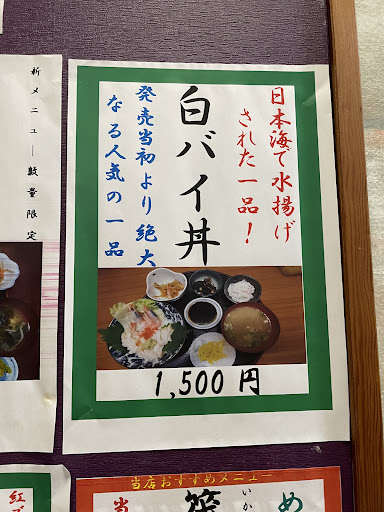 日本海で水揚げ
された一品！
白バイ丼
発売当初より絶大
なる人気の一品
1,500円
新メニュー 数量限定
当店おすすめメニュー
め
いか
紅
当